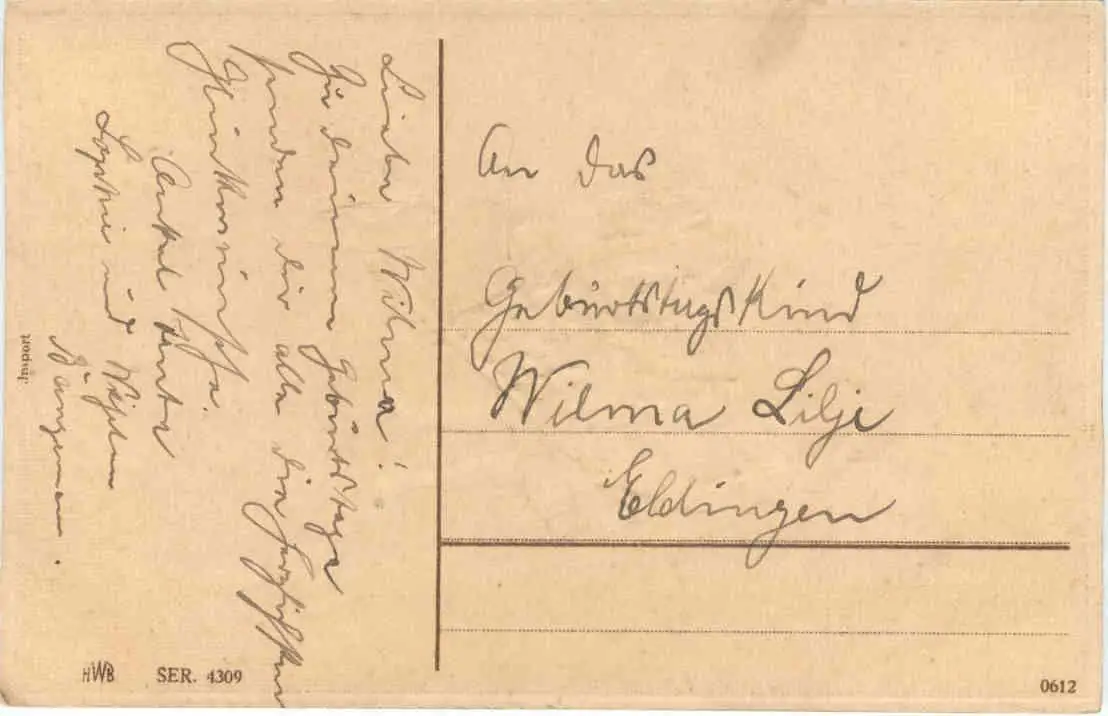 Liebe Wilma!
Zu deinem Geburtstage
senden dir alle die herzlichsten
Glückwünsche.
Onkel Tante
Sophie und
Bangemann.
An das
Geburtstagskind
Wilma Lilje
Eldingen
Import
HWB SER. 4309
0612